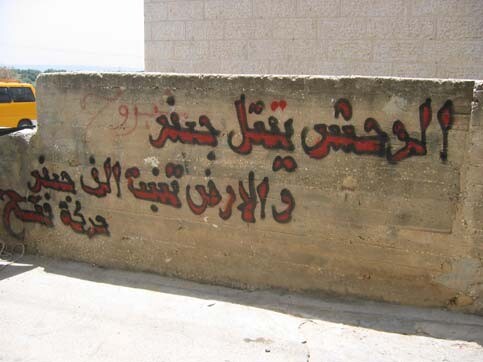 الوحش يقتل جعفر
والارض تنبت الف جعفر
حركة فتح